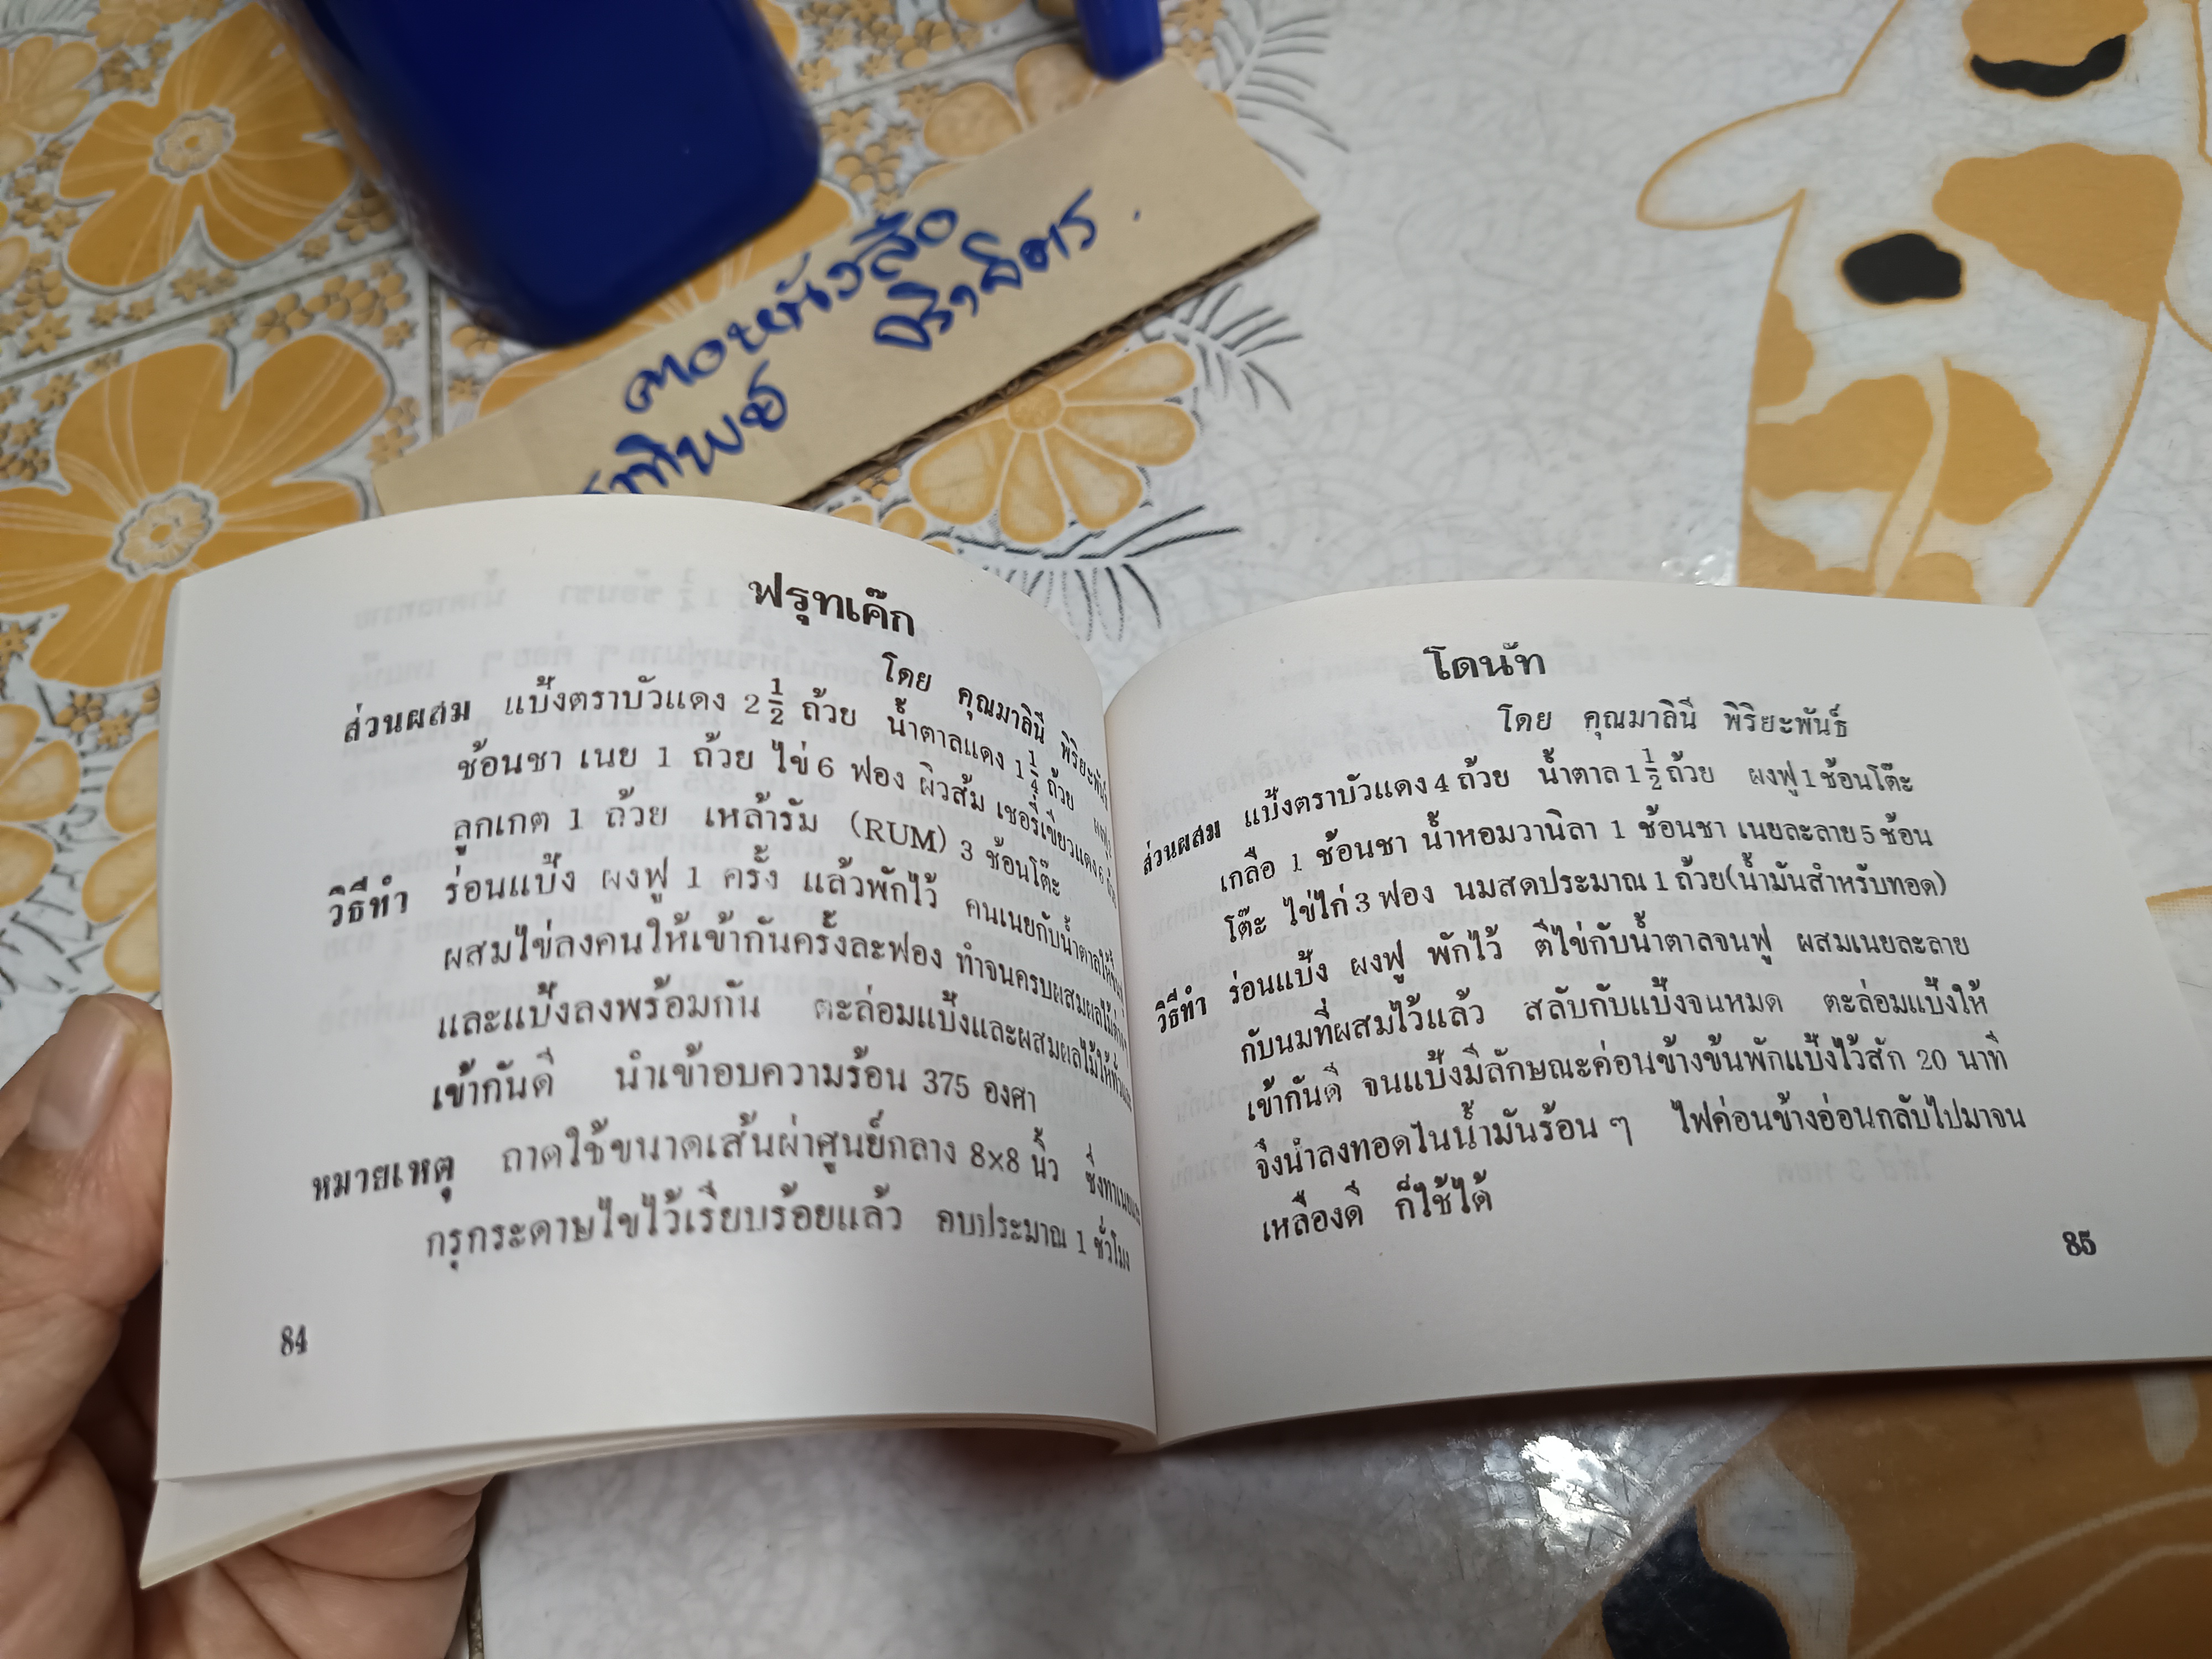 คอหนังสือ
จิราธิตร.
ฟรุทเค๊ก
โดย คุณมาลินี พิริยะพันธ์
ส่วนผสม แป้งตราบัวแดง 2 1/2 ถ้วย น้ำตาลแดง 1 1/4 ถ้วย
ช้อนชา เนย 1 ถ้วย ไข่ 6 ฟอง ผิวส้ม เชอรี่เขียวแดง 6
ลูกเกต 1 ถ้วย เหล้ารัม (RUM) 3 ช้อนโต๊ะ
วิธีทำ ร่อนแป้ง ผงฟู 1 ครั้ง แล้วพักไว้ คนเนยกับน้ำตาลให้ขึ้น
ผสมไข่ลงคนให้เข้ากันครั้งละฟอง ทำจนครบผสมผลไม้
และแป้งลงพร้อมกัน ตะล่อมแป้งและผสมผลไม้ให้ทั่ว
เข้ากันดี นำเข้าอบความร้อน 375 องศา
หมายเหตุ ถาดใช้ขนาดเส้นผ่าศูนย์กลาง 8x8 นิ้ว ซึ่งทาเนย
กรุกระดาษไขไว้เรียบร้อยแล้ว อบประมาณ 1 ชั่วโมง
84
โดนัท
โดย คุณมาลินี พิริยะพันธ์
ส่วนผสม แป้งตราบัวแดง 4 ถ้วย น้ำตาล 1 1/2 ถ้วย ผงฟู 1 ช้อนโต๊ะ
เกลือ 1 ช้อนชา น้ำหอมวานิลา 1 ช้อนชา เนยละลาย 5 ช้อน
โต๊ะ ไข่ไก่ 3 ฟอง นมสดประมาณ 1 ถ้วย(น้ำมันสำหรับทอด)
วิธีทำ ร่อนแป้ง ผงฟู พักไว้ ตีไข่กับน้ำตาลจนฟู ผสมเนยละลาย
กับนมที่ผสมไว้แล้ว สลับกับแป้งจนหมด ตะล่อมแป้งให้
เข้ากันดี จนแป้งมีลักษณะค่อนข้างข้นพักแป้งไว้สัก 20 นาที
จึงนำลงทอดในน้ำมันร้อน ๆ ไฟค่อนข้างอ่อนกลับไปมาจน
เหลืองดี ก็ใช้ได้
85